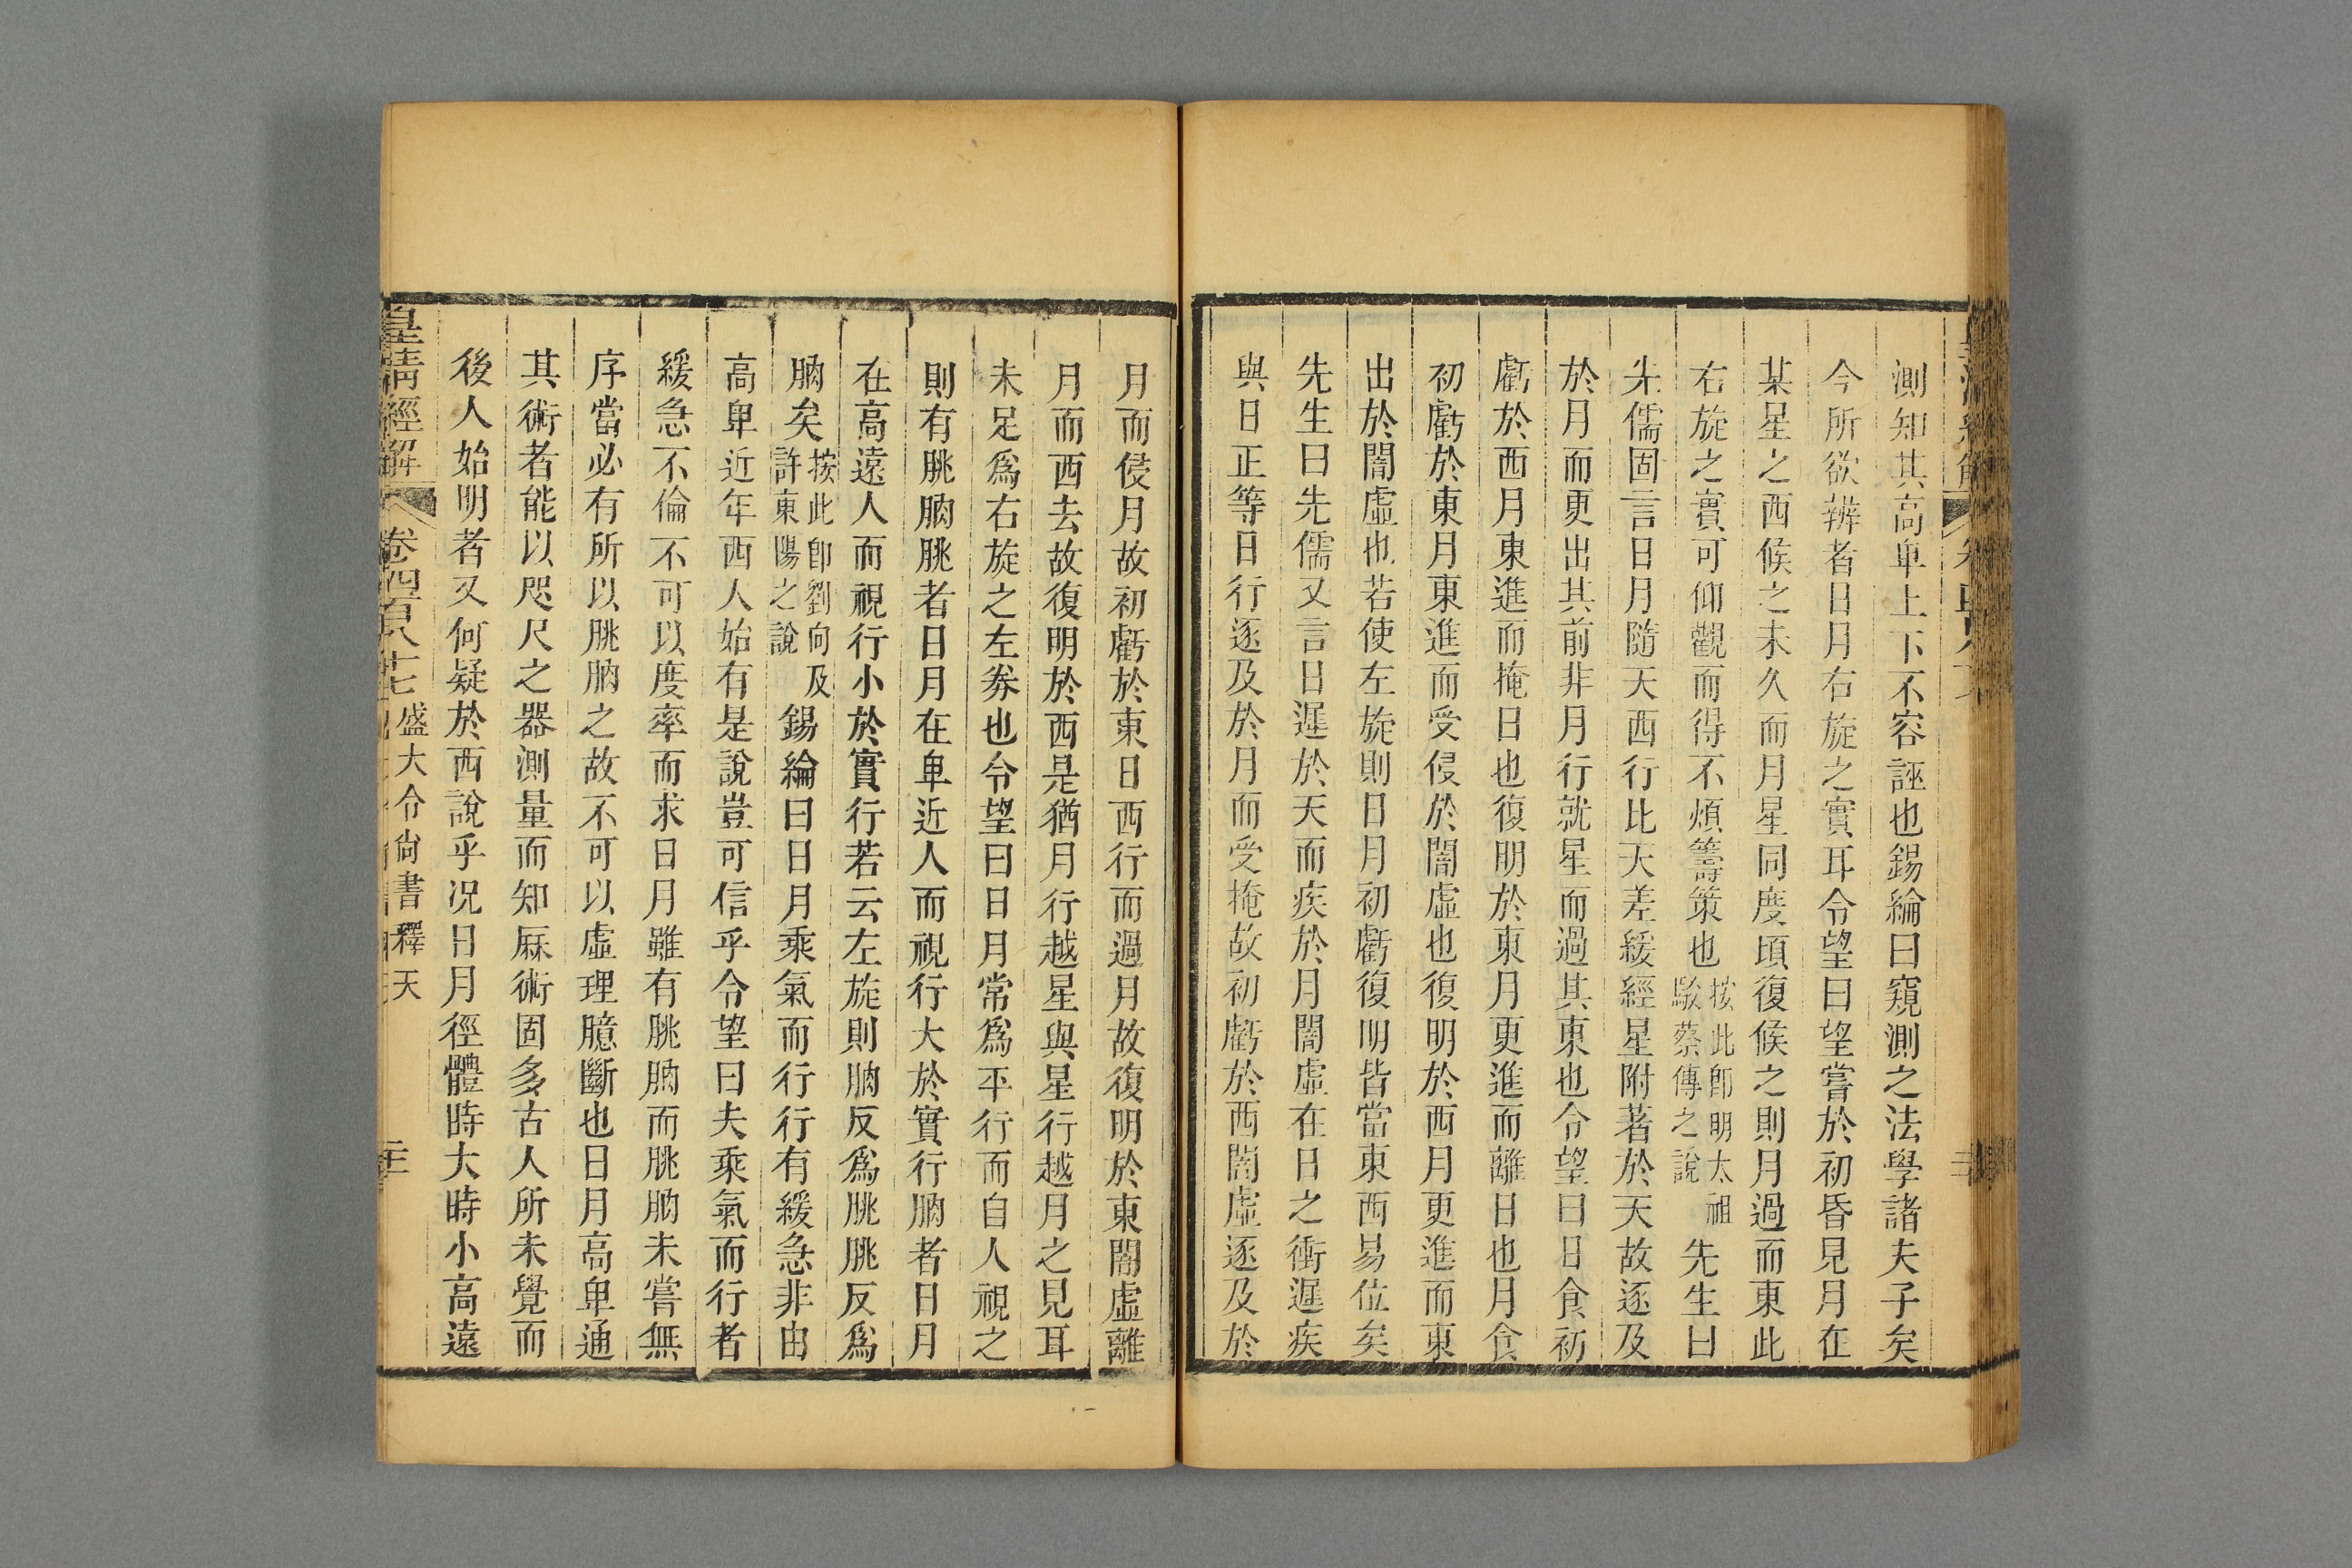 測知其高卑上下不容誣也錫綸曰窺測之法學諸夫子矣
今所欲辨者日月右旋之實耳令望曰望嘗於初昏見月在
某星之西候之未久而月星同度頃復候之則月過而東此
右旋之實可仰觀而得不煩籌策也按此卽明太祖駁蔡傳之說先生曰
先儒固言日月隨天西行比天差緩經星附著於天故逐及
於月而更出其前非月行就星而過其東也令望曰日食初
虧於西月東進而掩日也復明於東月更進而離日也月食
初虧於東月東進而受侵於闇虛也復明於西月更進而東
出於闇虛也若使左旋則日月初虧復明皆當東西易位矣
先生曰先儒又言日遲於天而疾於月闇虛在日之衝遲疾
與日正等日行逐及於月而受掩故初虧於西闇虛逐及於
月而侵月故初虧於東日西行而過月故復明於東闇虛離
月而西去故復明於西是猶月行越星與星行越月之見耳
未足爲右旋之左券也令望曰日月常爲平行而自人視之
則有朓朒朓者日月在卑近人而視行大於實行朒者日月
在高遠人而視行小於實行若云左旋則朒反爲朓朓反爲
朒矣按此卽劉向及許東陽之說錫綸曰日月乘氣而行行有緩急非由
高卑近年西人始有是說豈可信乎令望曰夫乘氣而行者
緩急不倫不可以度率而求日月雖有朓朒而朓朒未嘗無
序當必有所以朓朒之故不可以虛理臆斷也日月高卑通
其術者能以咫尺之器測量而知厤術固多古人所未覺而
後人始明者又何疑於西說乎况日月徑體時大時小高遠
皇清經解 卷四百八十七 盛大令尙書釋天 二十一